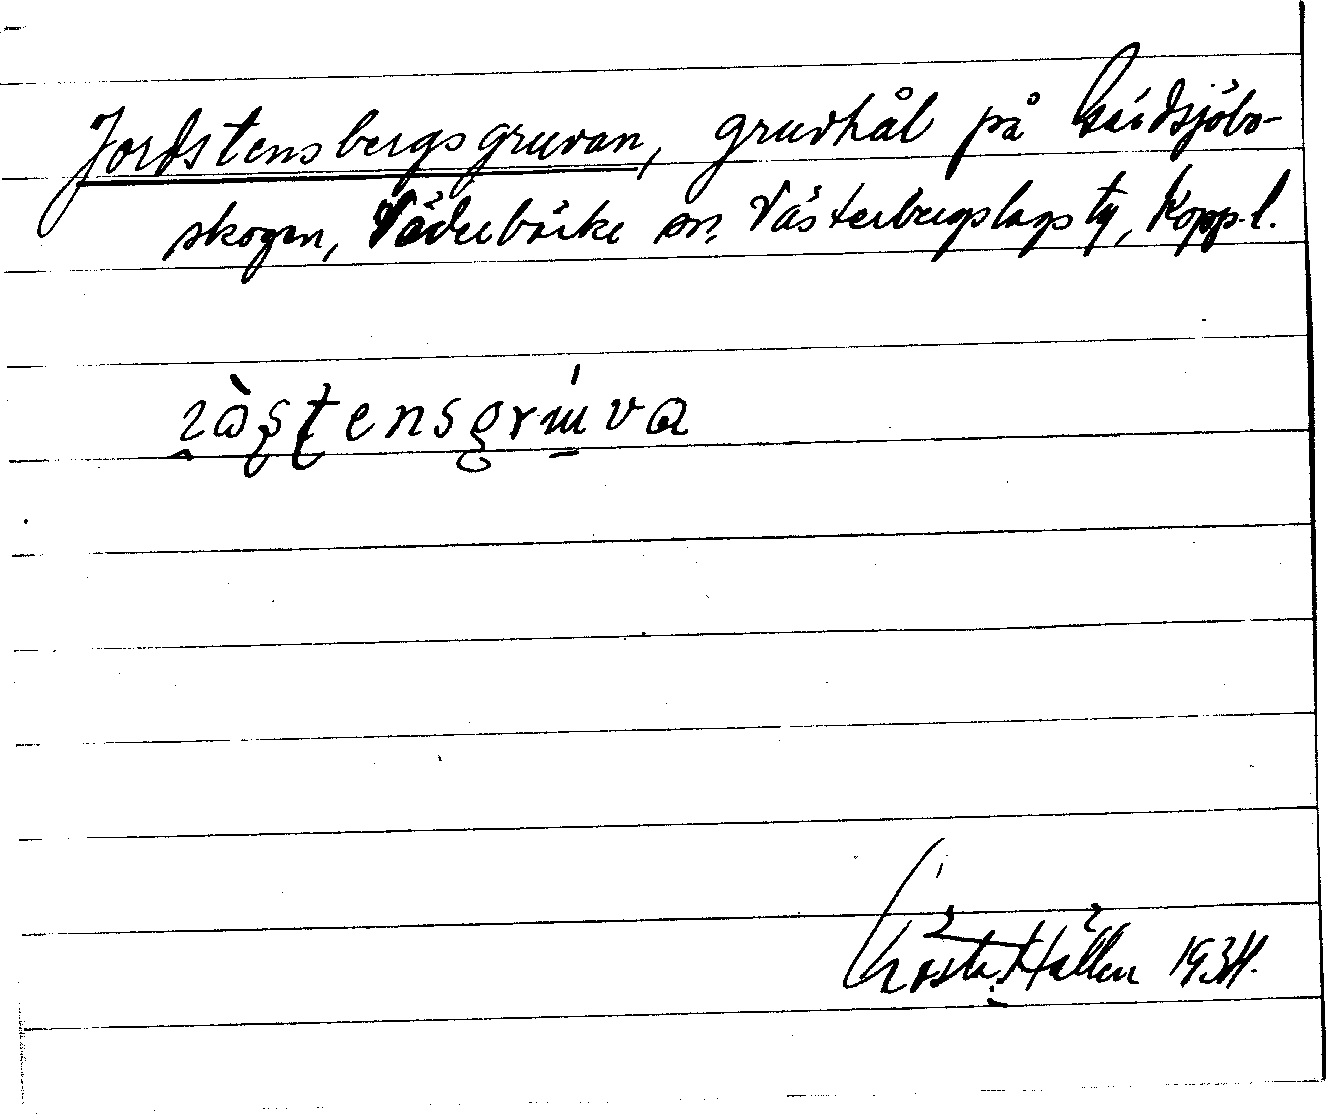 Jordstensbergsgruvan, gruvhål på Gäddsjöbo-
skogen, Söderbärke sn, Västerbergslags tg, Kopp. l.
Gösta Hallén 1934.